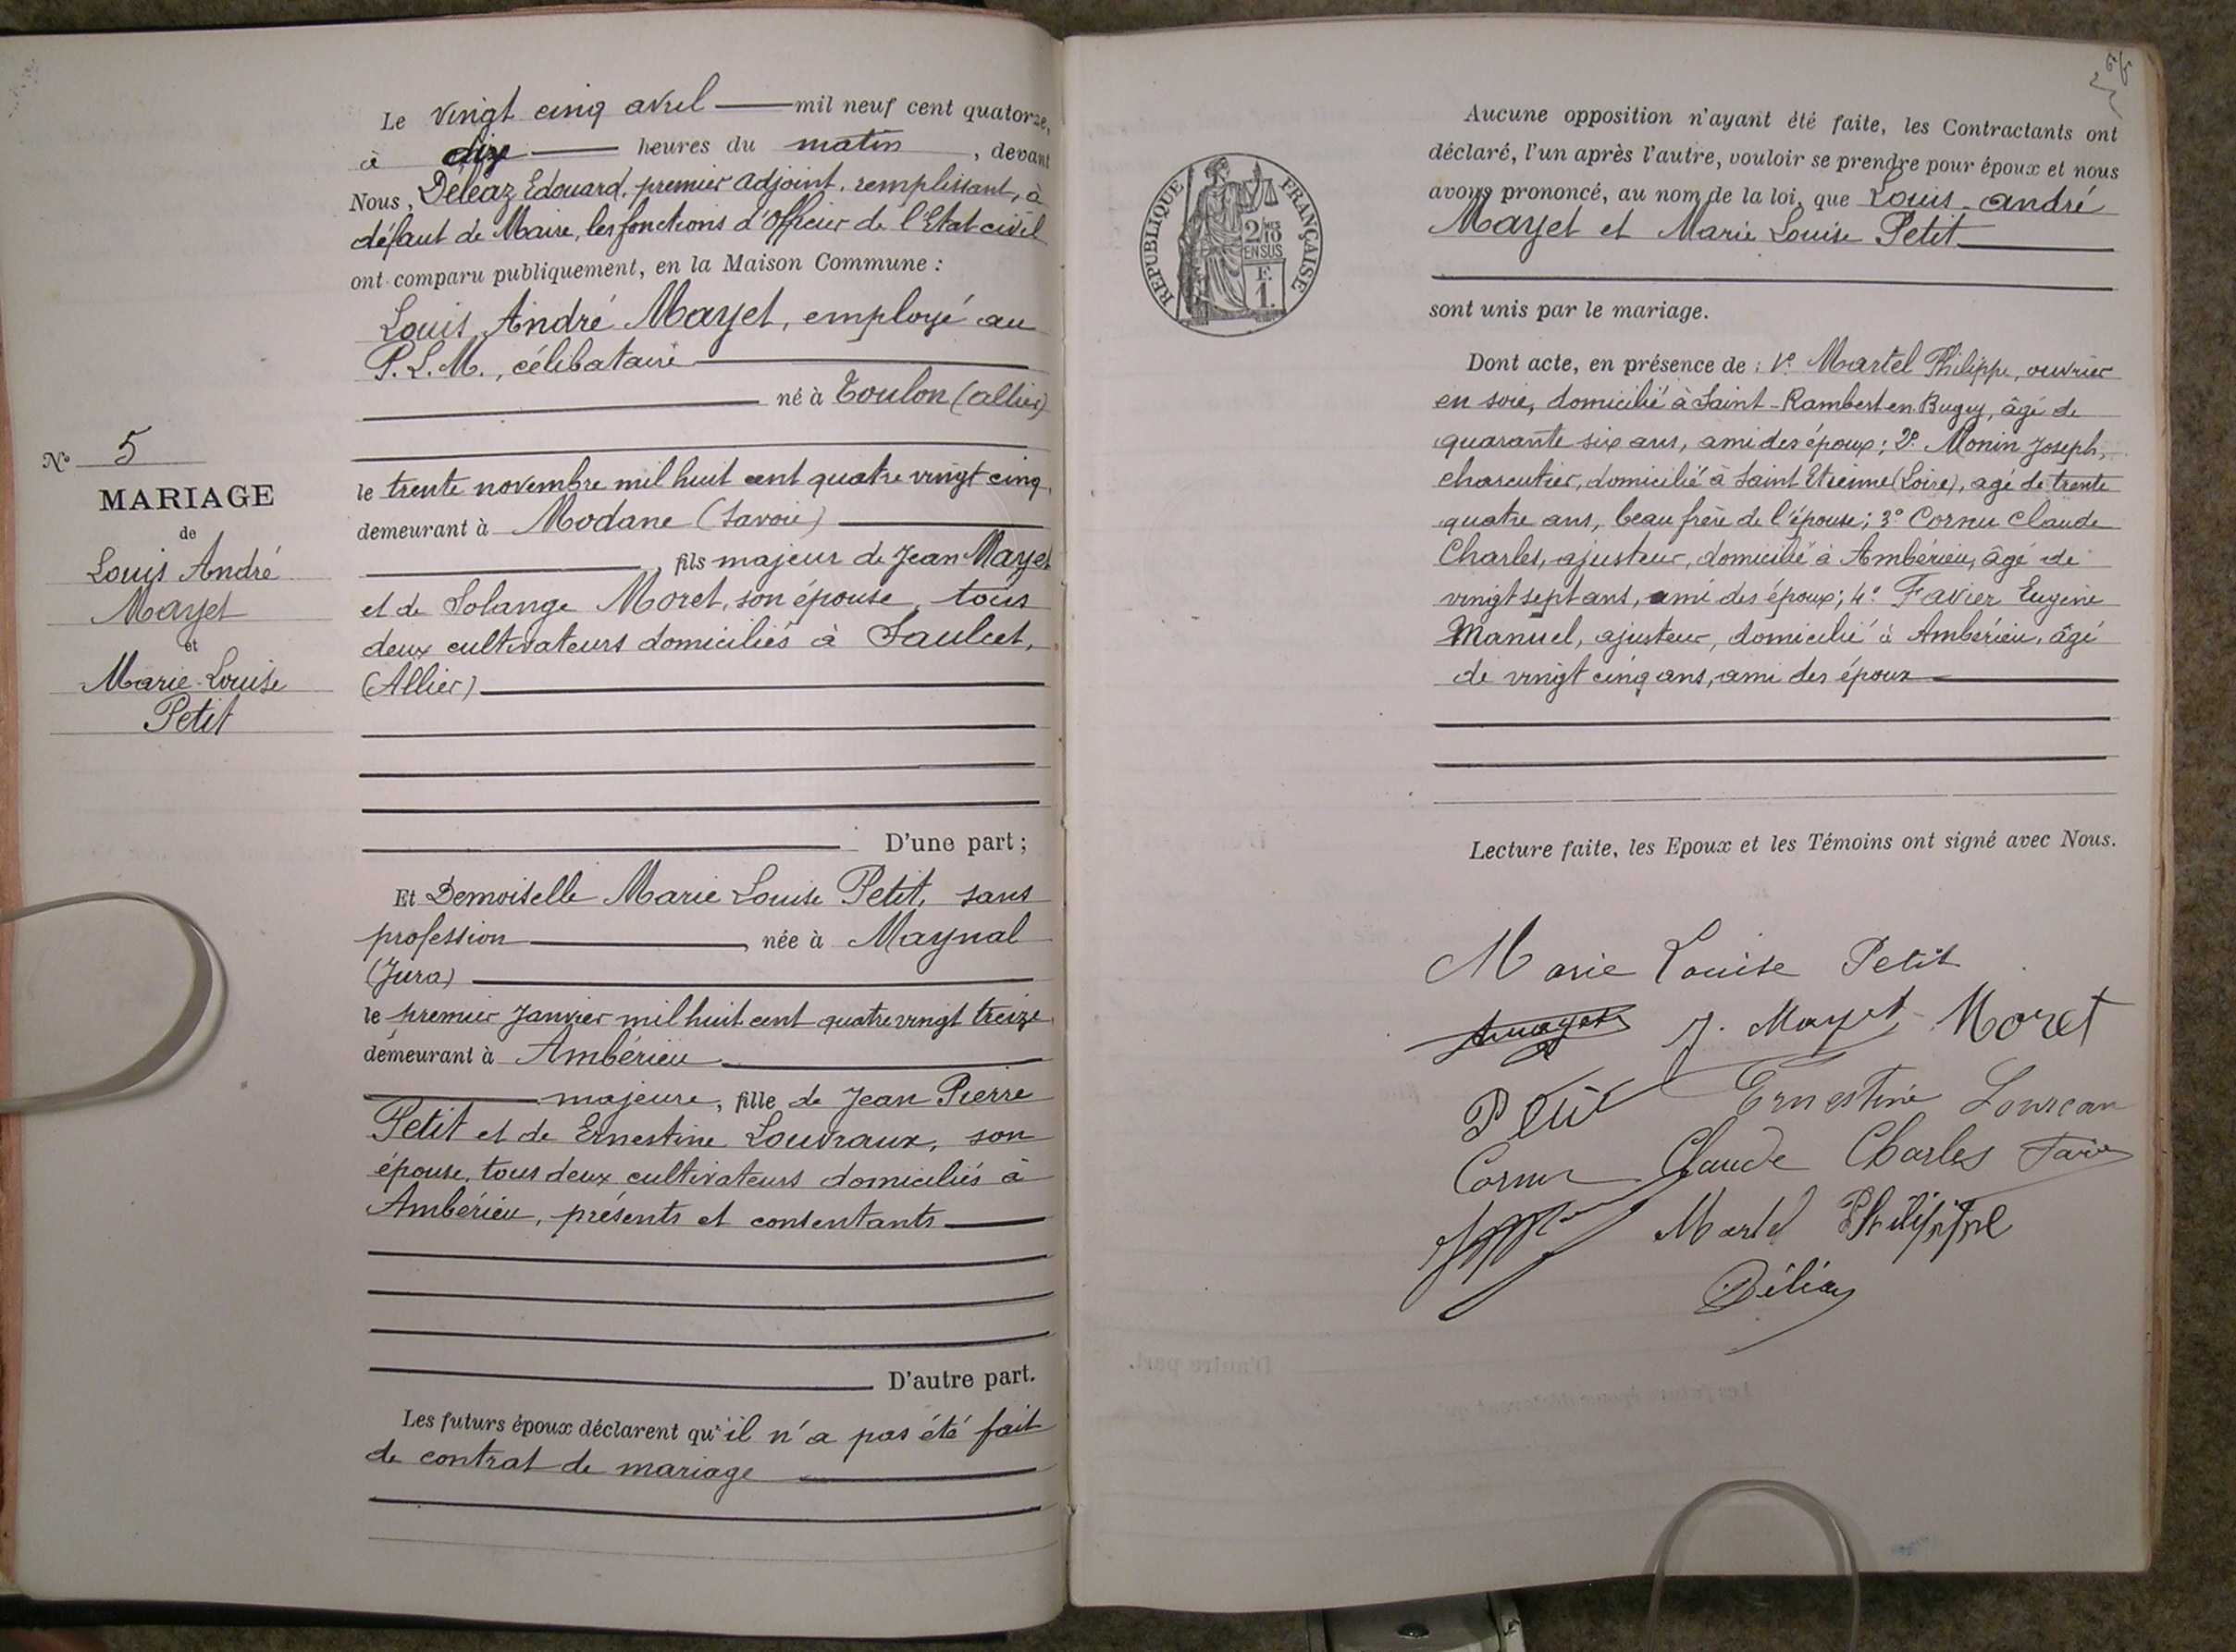 Le vingt cinq avril mil neuf cent quatorze,
à dix heures du matin, devant
Nous, Déléaz Edouard, premier adjoint, remplissant, à
défaut de Maire, les fonctions d'Officier de l'Etat civil
ont comparu publiquement, en la Maison Commune :
Louis André Mayet, employé au
P.L.M., célibataire
né à Toulon (Allier)
le trente novembre mil huit cent quatre vingt cinq,
demeurant à Modane (Savoie)
, fils majeur de Jean Mayet
et de Solange Moret, son épouse, tous
deux cultivateurs domiciliés à Saulcet,
(Allier)
D'une part ;
N° 5
MARIAGE
de
Louis André
Mayet
et
Marie-Louise
Petit
Et Demoiselle Marie Louise Petit, sans
profession, née à Maynal
(Jura)
le premier Janvier mil huit cent quatre vingt treize,
demeurant à Ambérieu
majeure, fille de Jean Pierre
Petit et de Ernestine Louvraux, son
épouse, tous deux cultivateurs domiciliés à
Ambérieu, présents et consentants
D'autre part.
Les futurs époux déclarent qu'il n'a pas été fait
de contrat de mariage
RÉPUBLIQUE FRANÇAISE
2/10
EN SUS
F.
1.
Aucune opposition n'ayant été faite, les Contractants ont
déclaré, l'un après l'autre, vouloir se prendre pour époux et nous
avons prononcé, au nom de la loi, que Louis-André
Mayet et Marie Louise Petit
sont unis par le mariage.
Dont acte, en présence de : 1° Martel Philippe, ouvrier
en soie, domicilié à Saint-Rambert en Bugey, âgé de
quarante six ans, ami des époux; 2° Monin Joseph,
charcutier, domicilié à Saint Etienne (Loire), agé de trente
quatre ans, beau frère de l'épouse; 3° Cornu Claude
Charles, ajusteur, domicilié à Ambérieu, âgé de
vingt sept ans, ami des époux; 4° Favier Eugène
Manuel, ajusteur, domicilié à Ambérieu, âgé
de vingt cinq ans, ami des époux
Lecture faite, les Epoux et les Témoins ont signé avec Nous.
Marie Louise Petit
J. Mayet Moret
Petit Ernestine
Cornu Claude Charles Favier
Martel Philippe
Déléaz